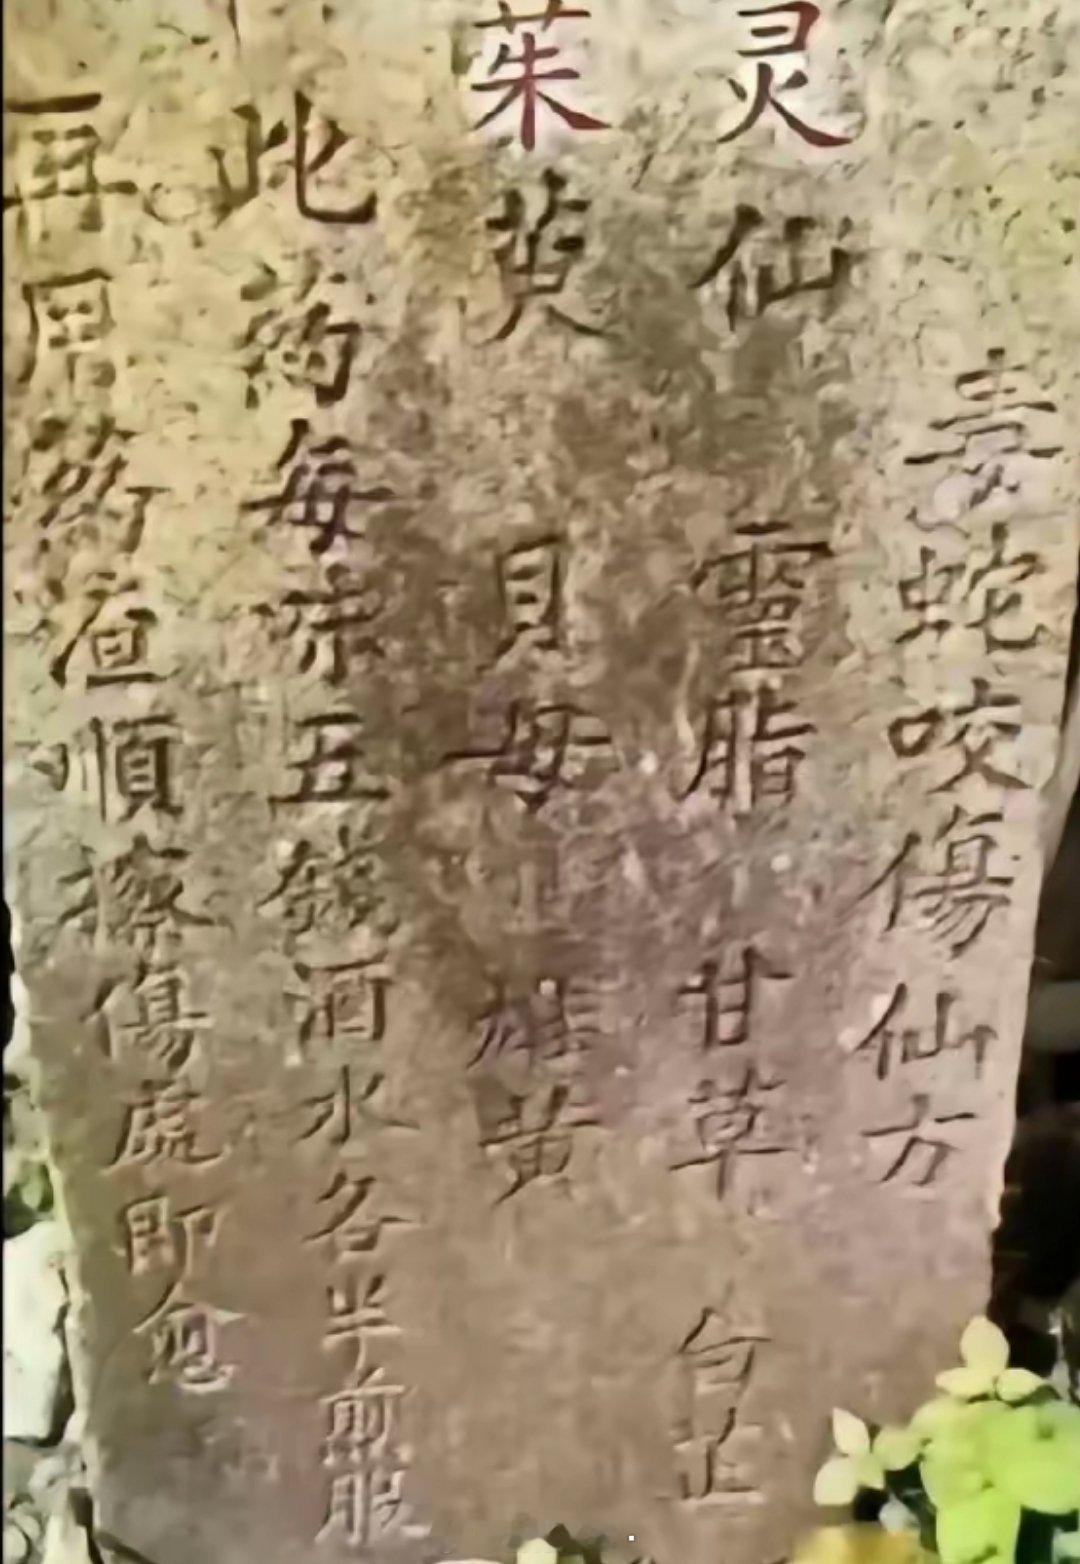 毒蛇咬傷仙方
灵仙 靈脂 甘草 白芷
茱萸 貝母 雄黄
此药每味五錢酒水各半煎服
再用药渣順擦傷處即愈